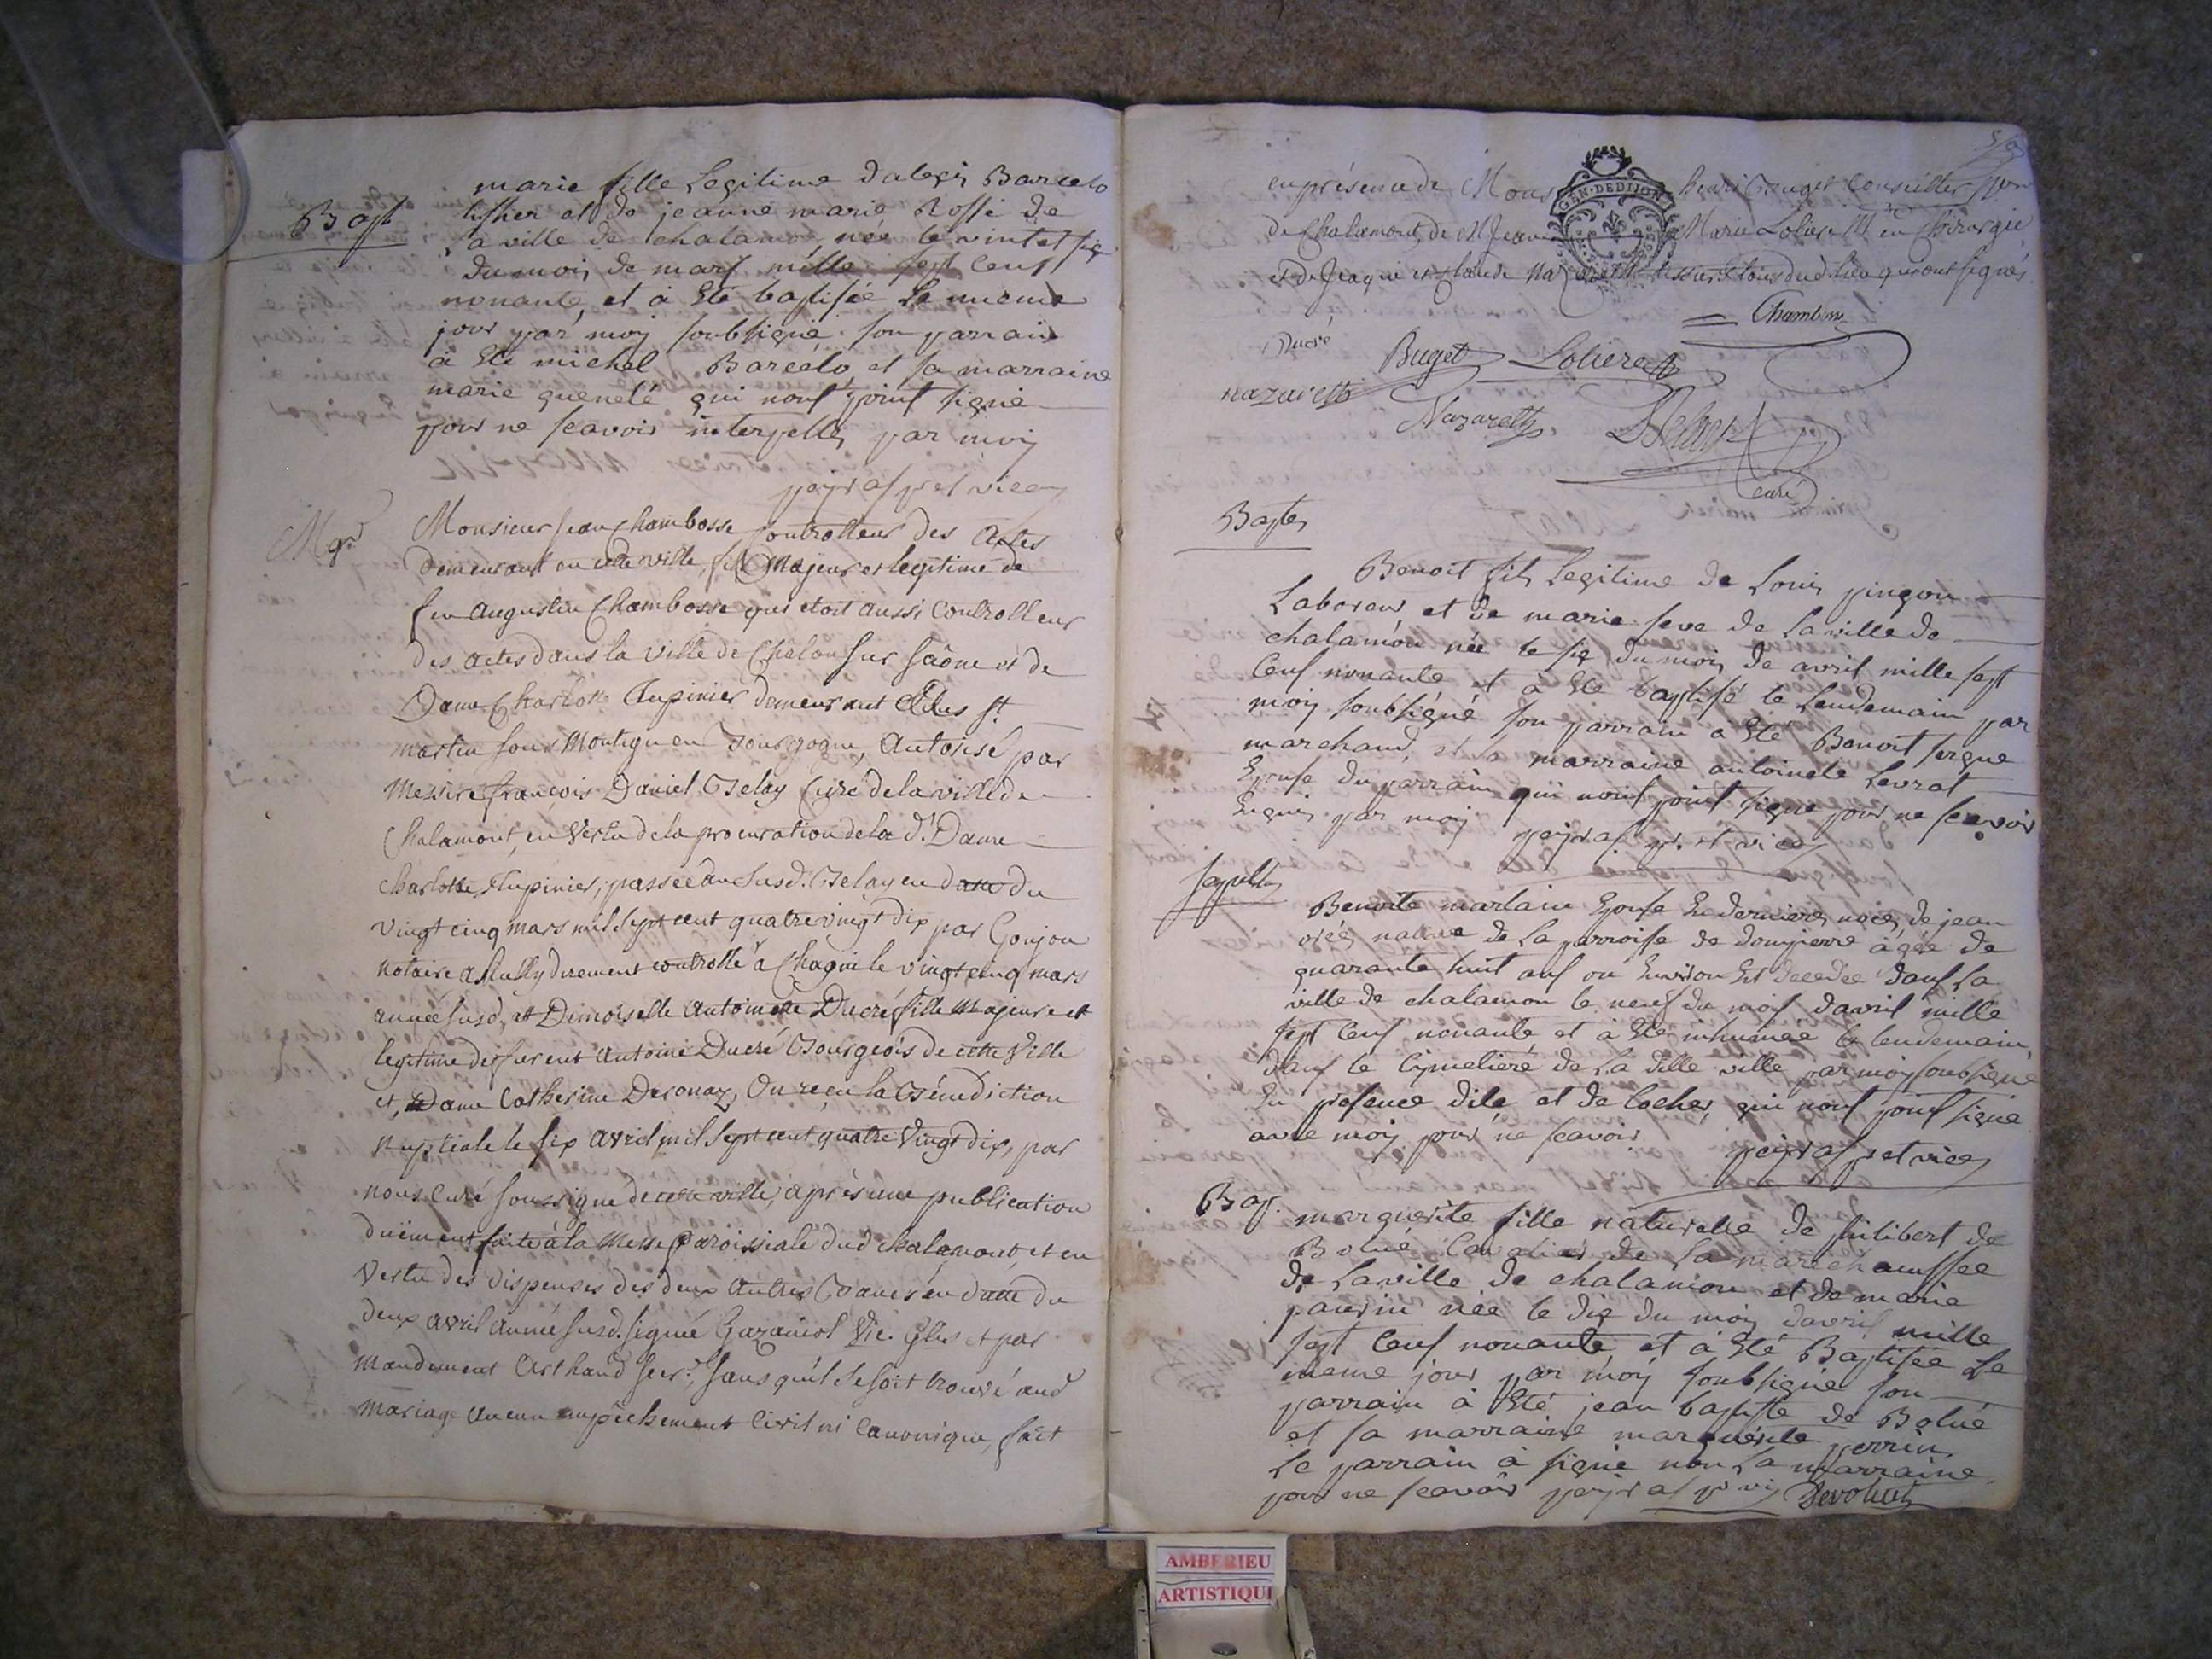 Bapt
marie fille Legitime dalexis Barcelo
tissier et de jeanne marie Rossi de
La ville de chalamon née le vint et six
du mois de mars mille sept cens
nonante, et à Eté baptisée Le meme
jour par moy soubsigné son parrain
à Eté michel Barcelo et sa marraine
marie quenelé qui nont point signé
pour ne scavoir interpellés par moy
M.ge
Monsieur Jean Chambosse Controlleur des Actes
demeurant en cette ville, fils Majeur et legitime de
feu Augustin Chambosse qui etoit aussi Controlleur
des actes dans la Ville de Châlon sur Saône et de
Dame Charlotte Tupinier demeurant St.
martin sous Montigu en Bourgogne, Autorisé par
Messire françois Daniel Belay Curé de la ville de
Chalamont, en Vertu de la procuration de la d.e Dame
charlotte Tupinier, passée au susd. Belay en datte du
vingt cinq mars mil sept cent quatre vingt dix par Goujon
notaire a Rully duement controllé à Chagni le vingt cinq mars
année susd, et Dimoiselle Antoinette Ducré fille Majeure et
legitime de furent Antoine Ducré Bourgeois de cette Ville
et, Dame Catherine Desonaz, On reçu la Bénédiction
nuptiale le six avril mil sept cent quatre Vingt dix, par
nous Curé soussigné de cette ville, après une publication
duëment faite à la Messe Paroissiale dud chalamont, et en
Vertu des dispenses des deux Autres Bancs en datte du
deux avril année susd. signé Gazaniol Vic. gl. et par
mandement Arthaud secr., sans qu'il se soit trouvé aud
mariage aucun empêchement Civil ni Canonique, fait
en présence de Mons henri Buget Conseiller
GEN. DE DIJON
de Chalamont, de M Jean Marie Loliere M.e en Chirurgie
et de Jaque et Claude Nazareth tissiers tous dud lieu qui ont signés
Chambosse
Ducré
Buget
Loliere
nazareth
Nazareth
Belay
curé
Bapte
Benoit fils Legitime de Louis pinçon
Laboreur et de marie seve de La ville de
chalamon née le six du mois de avril mille sept
Cens nonante et à Eté baptisé le lendemain par
moy soubsigné son parrain à Eté Benoit sergue
marchand, et la marraine antoinete Levrat
Epouse du parrain qui nont point signé pour ne scavoir
Enquis par moy
sepult
Benoite marlain Epouse En dernieres noces, de jean
orcés native de La parroisse de dompierre àgée de
quarante huit ans ou Environ Est decedée dans La
ville de chalamon le neuf du mois davril mille
sept Cens nonante et à Eté inhumée le lendemain
dans le Cymetiere de La ditte ville par moy soubsigné
En presence dile et de Cocher, qui nont point signé
avec moy pour ne scavoir
Bap.
marguerite fille naturelle de philibert de
Bolué Cavalier de La maréchaussée
de La ville de chalamon et de marie
paurin née le dix du mois davril mille
sept Cens nonante et à Eté Baptisée Le
meme jour par moy soubsigné son
parrain à Eté jean baptiste de Bolué
et sa marraine marguérite perrin
Le parrain à signé non La marraine
pour ne scavoir
AMBERIEU
ARTISTIQUE